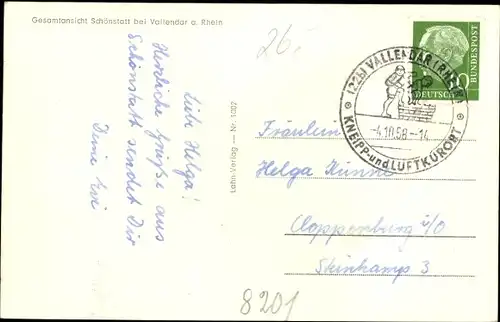 Gesamtansicht Schönstatt bei Vallendar a. Rhein
26.-
Liebe Helga!
Herzliche Grüße aus
Schönstatt sendet Dir
Deine Evi
Lahn-Verlag — Nr. 1002
DEUTSCHE BUNDESPOST
10
(22b) VALLENDAR (RHEIN)
-4.10.58-14
KNEIPP-und LUFTKURORT
Fräulein
Helga
Cloppenburg i/O
Steinkamp 3
8201